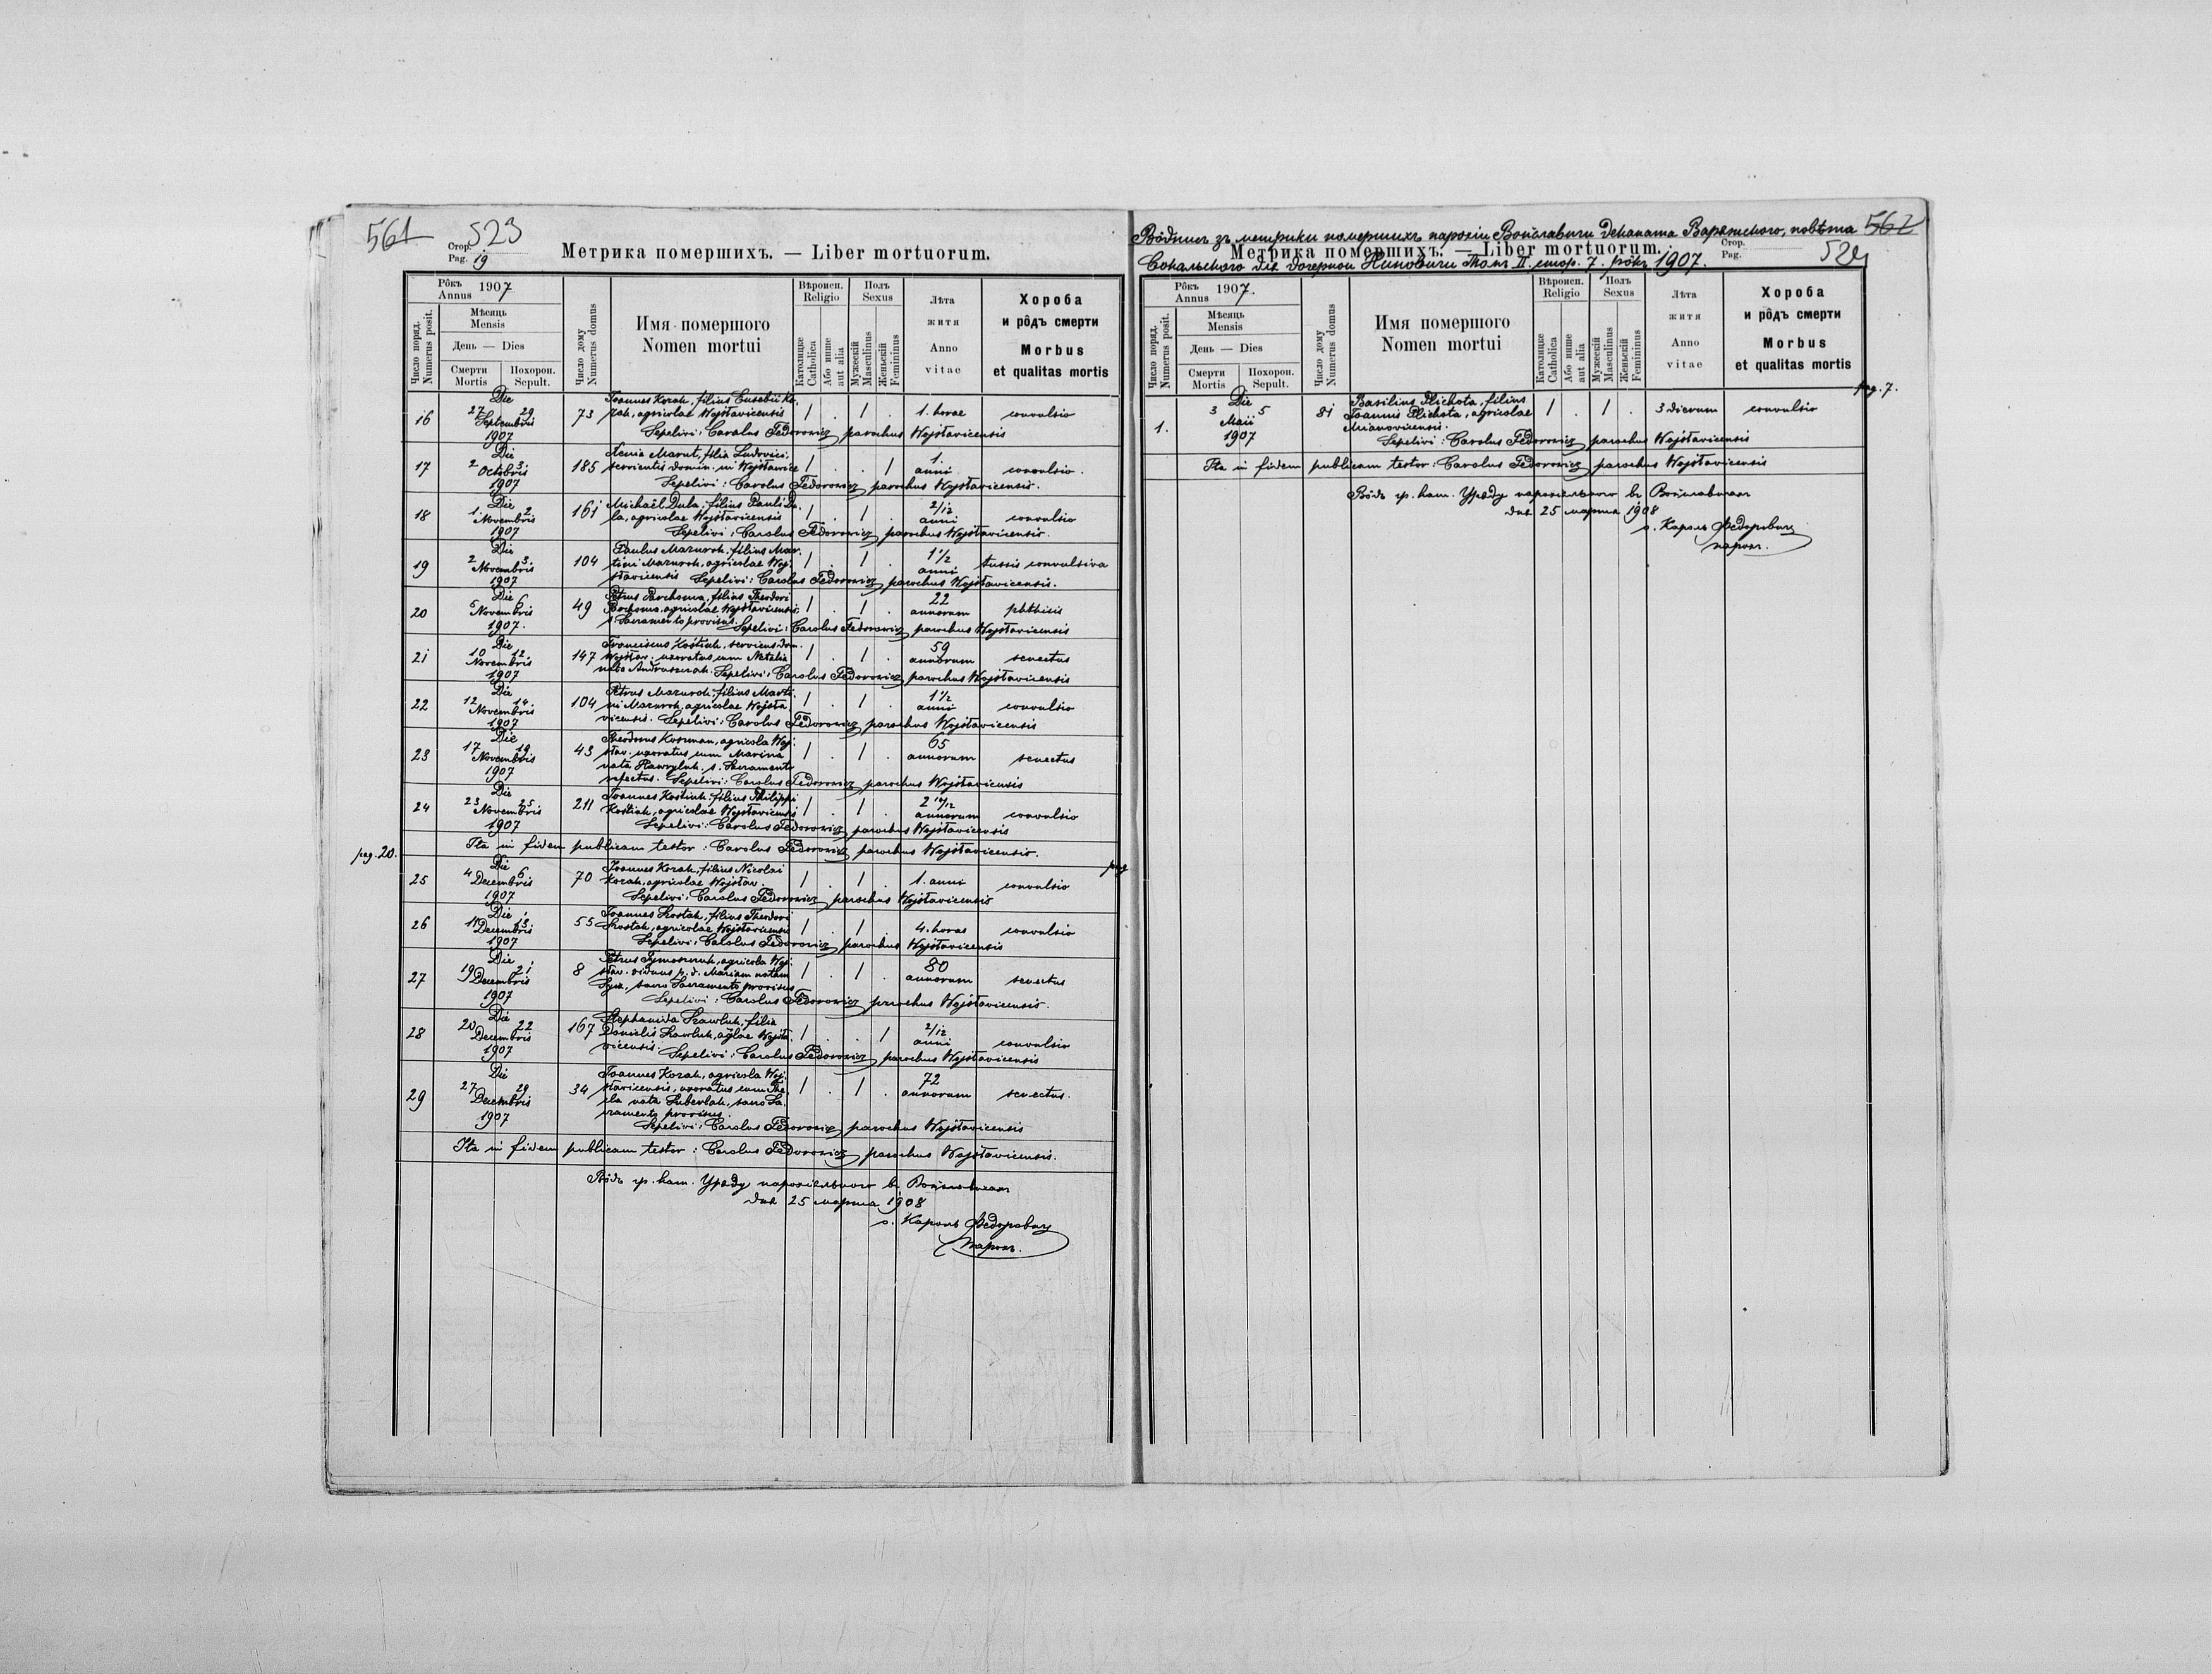 561 523
Стор. Pag. 19
Метрика помершихъ. — Liber mortuorum.
Рôкъ Annus 1907
Число поряд. Numerus posit.
Мѣсяць Mensis
День — Dies
Смерти Mortis
Похорон. Sepult.
Число дому Numerus domus
Имя помершого Nomen mortui
Вѣроисп. Religio
Католицке Catholica
Або инше aut alia
Полъ Sexus
Мужескій Masculinus
Женьскій Femininus
Лѣта житя Anno vitae
Хороба и рôдъ смерти Morbus et qualitas mortis
16 Die 27 29 Septembris 1907 73 Joannes Kozak, filius Eusebii Ko-
zak, agricolae Wojsławicensis 1 . 1 . 1. horae convulsio
Sepelivi: Carolus Fedorowicz parochus Wojsławicensis
17 Die 2 3 Octobris 1907 185 Xenia Marut, filia Ludovici,
servientis domin. in Wojsławice 1 . . 1 1. anni convulsio.
Sepelivi: Carolus Fedorowicz parochus Wojsławicensis.
18 Die 1. 2 Novembris 1907 161 Michaël Duba, filius Pauli Du-
ba, agricolae Wojsławicensis 1 . 1 . 2/12 anni convulsio
Sepelivi: Carolus Fedorowicz parochus Wojsławicensis.
19 Die 2 3. Novembris 1907 104 Paulus Mazurok, filius Mar-
tini Mazurok, agricolae Woj- 1 . 1 . 1 1/2 anni tussis convulsiva
sławicensis Sepelivi: Carolus Fedorowicz parochus Wojsławicensis.
20 Die 5 6 Novembris 1907. 49 Petrus Parchoma, filius Theodori
agricolae Wojsławicensis, 1 . 1 . 22 annorum phthisis
s. Sacramento provisus. Sepelivi: Carolus Fedorowicz parochus Wojsławicensis
21 Die 10 12. Novembris 1907 147 Franciscus Kostiuk, serviens dom.
Wojsław. uxoratus cum Natalia 1 . 1 . 59 annorum senectus
nata Sepelivi: Carolus Fedorowicz parochus Wojsławicensis
22 Die 12 14 Novembris 1907 104 Petrus Mazurok, filius Marti-
ni Mazurok, agricolae Wojsła- 1 . 1 . 1 1/2 anni convulsio
vicensis. Sepelivi: Carolus Fedorowicz parochus Wojsławicensis
23 Die 17 19 Novembris 1907 43 Theodorus agricola Woj-
sław. uxoratus cum Marina 1 . 1 . 65 annorum senectus
nata Hawryluk, s. Sacramento
refectus. Sepelivi: Carolus Fedorowicz parochus Wojsławicensis
24 Die 23 25 Novembris 1907 211 Joannes Kostiuk, filius Philippi
Kostiuk, agricolae Wojsławicensis 1 . 1 . 2 annorum convulsio
Sepelivi: Carolus Fedorowicz parochus Wojsławicensis
Ita in fidem publicam testor: Carolus Fedorowicz parochus Wojsławicensis.
pag. 20.
25 Die 4 6 Decembris 1907 70 Joannes Kozak, filius Nicolai
Kozak, agricolae Wojsław. 1 . 1 . 1. anni convulsio
Sepelivi: Carolus Fedorowicz parochus Wojsławicensis
pag
26 Die 11 13. Decembris 1907 55 Joannes filius Theodori
agricolae Wojsławicensis 1 . 1 . 4. horas convulsio
Sepelivi: Carolus Fedorowicz parochus Wojsławicensis
27 Die 19 21 Decembris 1907 8 Petrus agricola Woj-
sław. viduus p. d. Mariam natam 1 . 1 . 80 annorum senectus
sacro Sacramento provisus
Sepelivi: Carolus Fedorowicz parochus Wojsławicensis.
28 Die 20 22 Decembris 1907 167 Stephanida filia
Danielis agr̃lae Wojsła- 1 . . 1 2/12 anni convulsio
vicensis. Sepelivi: Carolus Fedorowicz parochus Wojsławicensis
29 Die 27 29 Decembris 1907 34 Joannes Kozak, agricola Woj-
sławicensis, uxoratus cum The- 1 . 1 . 72 annorum senectus.
cla nata sacro Sa-
cramento provisus.
Sepelivi: Carolus Fedorowicz parochus Wojsławicensis
Ita in fidem publicam testor: Carolus Fedorowicz parochus Wojsławicensis.
Вôдъ гр. кат. Уряду парохіяльного въ Войславичах
дня 25 марта 1908
о. Кароль Федорович
парох.
Вôдпись зъ метрики помершихъ парохіи Войславичи Деканата Варяжского, повѣта 562
Стор. Pag. 524
Метрика помершихъ. — Liber mortuorum.
Сокальского для дочернои Томъ II. стор. 7. рôкъ 1907.
Рôкъ Annus 1907.
Число поряд. Numerus posit.
Мѣсяць Mensis
День — Dies
Смерти Mortis
Похорон. Sepult.
Число дому Numerus domus
Имя помершого Nomen mortui
Вѣроисп. Religio
Католицке Catholica
Або инше aut alia
Полъ Sexus
Мужескій Masculinus
Женьскій Femininus
Лѣта житя Anno vitae
Хороба и рôдъ смерти Morbus et qualitas mortis
pag. 7.
1. Die 3 5 Maii 1907 81 Basilius Plichota, filius
Joannis Plichota, agricolae 1 . 1 . 3 dierum convulsio
Sepelivi: Carolus Fedorowicz parochus Wojsławicensis
Ita in fidem publicam testor: Carolus Fedorowicz parochus Wojsławicensis
Вôдъ гр. кат. Уряду парохіяльного въ Войславичах
дня 25 марта 1908
о. Кароль Федорович
парох.